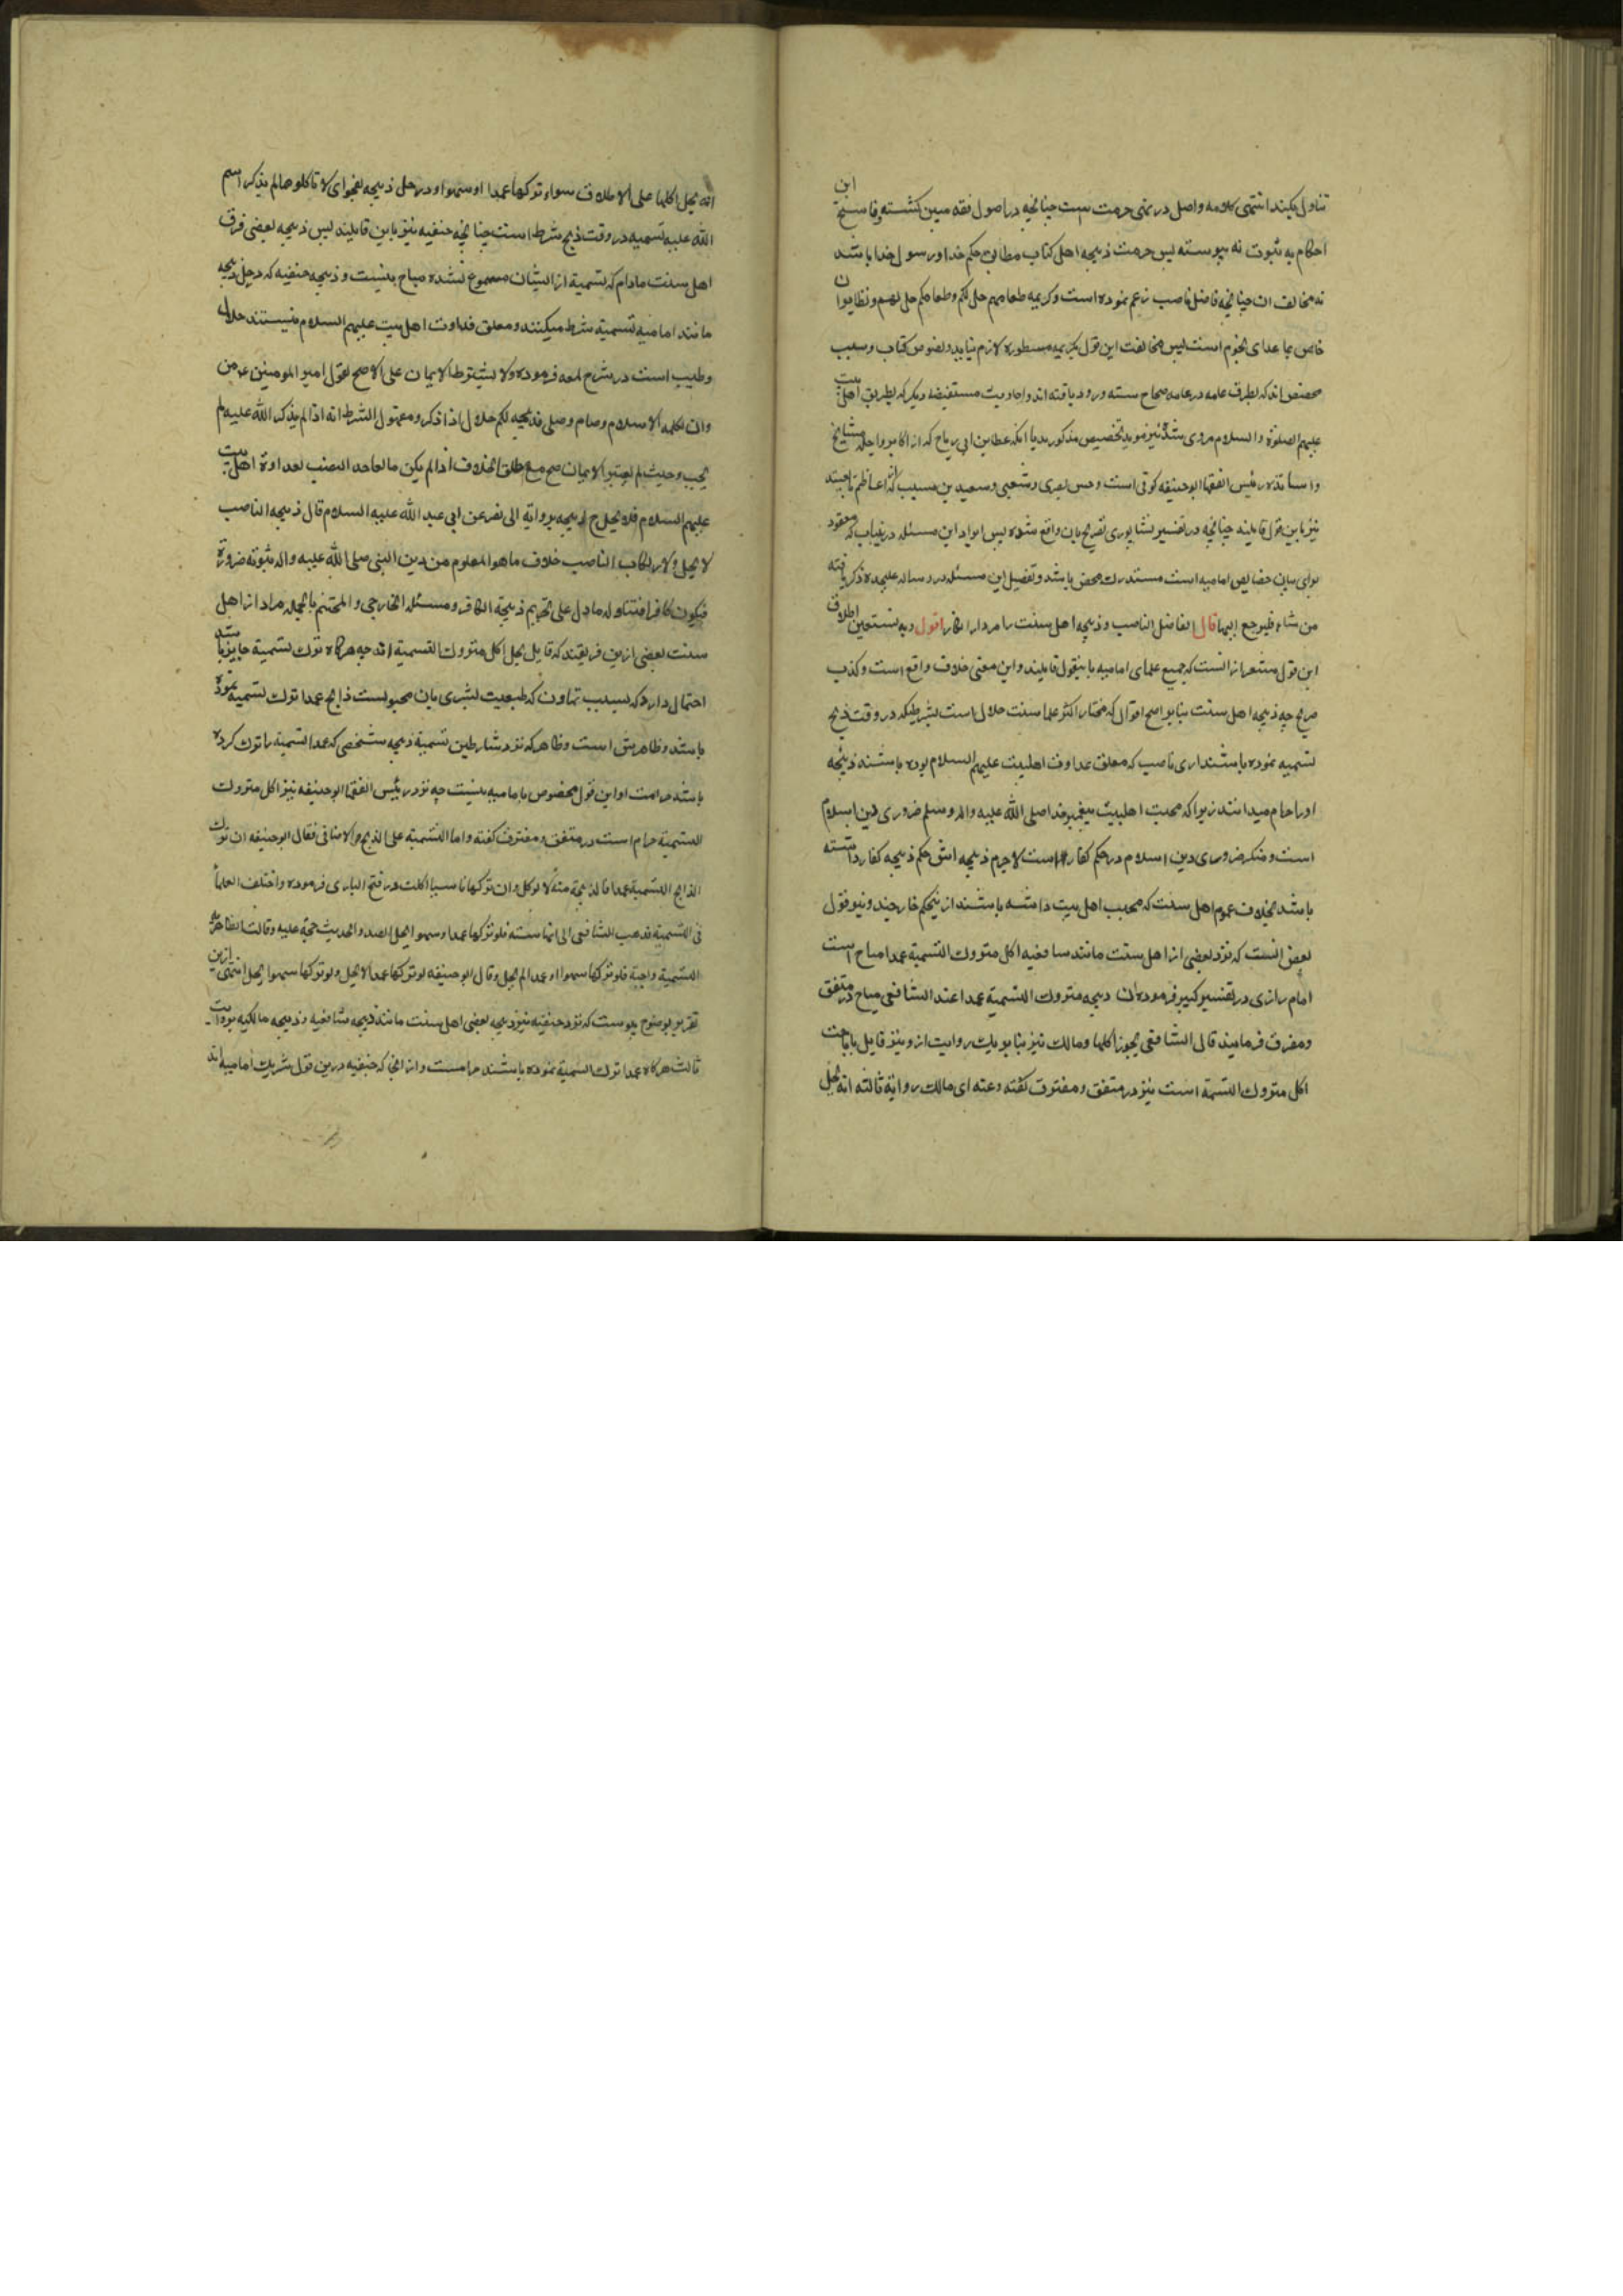 تناول میکند انتهی کلامه واصل در نهی حرمت است چنانچه در اصول فقه مبین کشته وناسخ این
احکام به ثبوت نه پیوسته پس حرمت ذبیحه اهل کتاب مطابق حکم خدا ورسول خدا باشد
نه مخالف ان چنانچه فاضل ناصب زعم نموده است وکریمه طعامهم حل لکم وطعامکم حل لهم ونظایر ان
خاص بما عدای لحوم است پس مخالفت این قول بکریمه مسطوره لازم نیاید ونصوص کتاب وسبب
مخصص اند که بطرق عامه در عامه صحاح سته ورود یافته اند واحادیث مستفیضه دیکر که بطریق اهل بیت
علیهم الصلوة والسلام مروی شده نیز موید تخصیص مذکور بدیا انکه عطا بن ابی ریاح که از اکابر واجله مشایخ
واساتذه رئیس الفقها ابوحنیفه کوفی است وحسن بصری وشعبی وسعید بن مسیب که از اعاظم تابعیند
نیز باین قول قایلند چنانچه در تفسیر نشاپوری تصریح بان واقع شده پس ایراد این مسئله درینباب که معقود
برای بیان خصایص امامیه است مستدرک محض باشد وتفصیل این مسئله در رساله علیحده ذکر یافته
من شاء فلیرجع الیها قال الفاضل الناصب وذبیحه اهل سنت را مردار انکار اقول وبه نستعین اطلاق
این قول مشعر از انست که جمیع علمای امامیه باینقول قایلند واین معنی خلاف واقع است وکذب
صریح چه ذبیحه اهل سنت بنابر اصح اقوال که مختار اکثر علما سنت حلال است بشرطیکه در وقت ذبح
تسمیه نموده باشند اری ناصب که معلن عداوت اهلبیت علیهم السلام بوده باشند ذبیحه
او را حرام میدانند زیرا که محبت اهلبیت پیغمبر خدا صلی الله علیه واله وسلم ضروری دین اسلام
است ومنکر ضروری دین اسلام در حکم کفار است لاجرم ذبیحه اش حکم ذبیحه کفار داشته
باشد بخلاف عموم اهل سنت که محب اهل بیت داشته باشند ازینحکم خارجند ونیز قول
بعض انست که نزد بعضی از اهل سنت مانند شافعیه اکل متروک التسمیة عمدا مباح است
امام رازی در تفسیر کبیر فرموده ان ذبیحه متروک التسمیة عمدا عند الشافعی مباح در متفق
ومفترق فرمایند قال الشافعی یجوز اکلها ومالک نیز بنابر یک روایت ازو نیز قایل باباحت
اکل متروک التسمة است نیز در متفق ومفترق کفته وعنه ای مالک روایة ثالثه انه یحل
انه یحل اکلها علی الاطلاق سواء ترکها عمدا او سهوا ودر حل ذبیحه بفحوای لا تاکلوا مما لم یذکر اسم
الله علیه تسمیه در وقت ذبح شرط است چنانچه حنفیه نیز باین قایلند پس ذبیحه بعضی فرق
اهل سنت مادام که تسمیة از ایشان مسموع نشده مباح نیست وذبیحه حنفیه که در حل ذبیحه
مانند امامیه تسمیة شرط میکنند ومعلن عداوت اهل بیت علیهم السلام نیستند حلال
وطیب است در شرح لمعه فرموده ولا یشترط الایمان علی الاصح لقول امیر المومنین ع من
وان بکلمه الاسلام وصام وصلی فذبیحه لکم حلال اذا ذکر ومفهوم الشرط انه اذا لم یذکر الله علیه لم
یجب وحیث لم یعتبر الایمان صح مع مطلق الخلاف اذا لم یکن مالعاحد النصب لعداوة اهل بیت
علیهم السلام فلا یحل ذبیحه بروایه ابی بصیر عن ابی عبد الله علیه السلام قال ذبیحه الناصب
لا یحل ولارتکاب الناصب خلاف ما هو المعلوم من دین النبی صلی الله علیه واله ثبوته ضرورة
فیکون کافرا فتناوله ما دل علی تحریم ذبیحة الکافر ومسئله الخارجی والمجسم بالجمله مراد از اهل
سنت بعضی ازین فریقند که قایل بحل اکل متروک التسمیة اند چه هرکاه ترک تسمیة جایز باشد
احتمال دارد که بسبب تهاون که طبیعت بشری بان مجبولست ذابح عمدا ترک تسمیة نموده
باشد وظاهرش است وظاهر که نزد شارطین تسمیة ذبیحه شخصی که عمدا تسمیة را ترک کرده
باشد حرامت واین قول مخصوص بامامیه نیست چه نزد رئیس الفقها ابوحنیفه نیز اکل متروک
التسمیة حرام است در متفق ومفترق کفته واما التسمیة علی الذبح والاضاحی فقال ابوحنیفه ان ترک
الذابح التسمیة عمدا فالذبیحة میتة لا توکل وان ترکها ناسیا اکلت در فتح الباری فرموده واختلف العلما
فی التسمیة فذهب الشافعی الی انها سنته فلو ترکها عمدا وسهوا یحل الصید والحدیث حجة علیه وقالت الظاهریه
التسمیة واجبة فلو ترکها سهوا او عمدا لم یحل وقال ابوحنیفه لو ترکها عمدا لا یحل ولو ترکها سهوا یحل انتهی ازین
تقریر بوضوح پیوست که نزد حنفیه نیز ذبیحه بعضی اهل سنت مانند ذبیحه شافعیه وذبیحه مالکیه بروایت
ثالث هرکاه عمدا ترک التسمیة نموده باشند حرامست وازانجا که حنفیه درین قول شریک امامیه اند